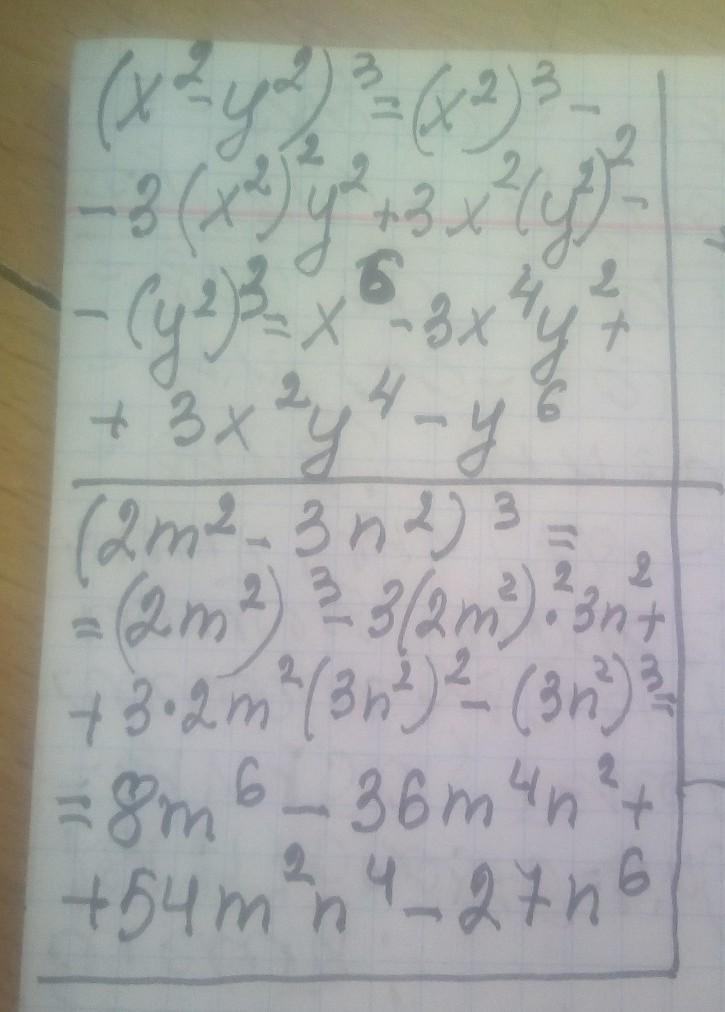 (x²-y²)³=(x²)³-
-3(x²)²y²+3x²(y²)²-
-(y²)³=x⁶-3x⁴y²+
+3x²y⁴-y⁶
(2m²-3n²)³=
=(2m²)³-3(2m²)·²3n²+
+3·2m²(3n²)²-(3n²)³=
=8m⁶-36m⁴n²+
+54m²n⁴-27n⁶